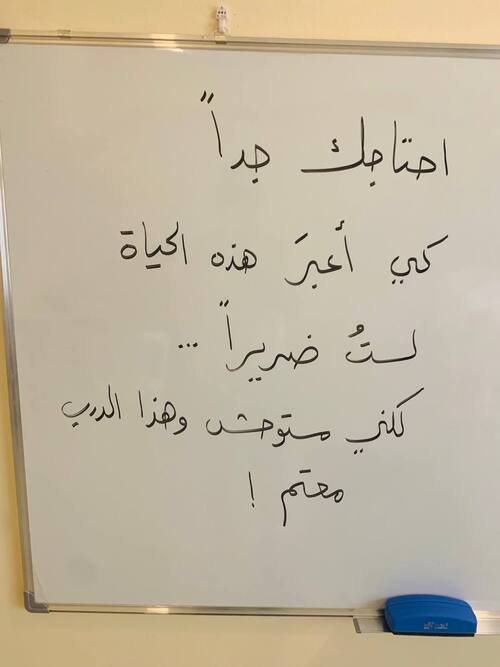 احتاجك جداً
كي أعبرَ هذه الحياة
لستُ ضريراً ...
لكني مستوحش وهذا الدرب
معتم !